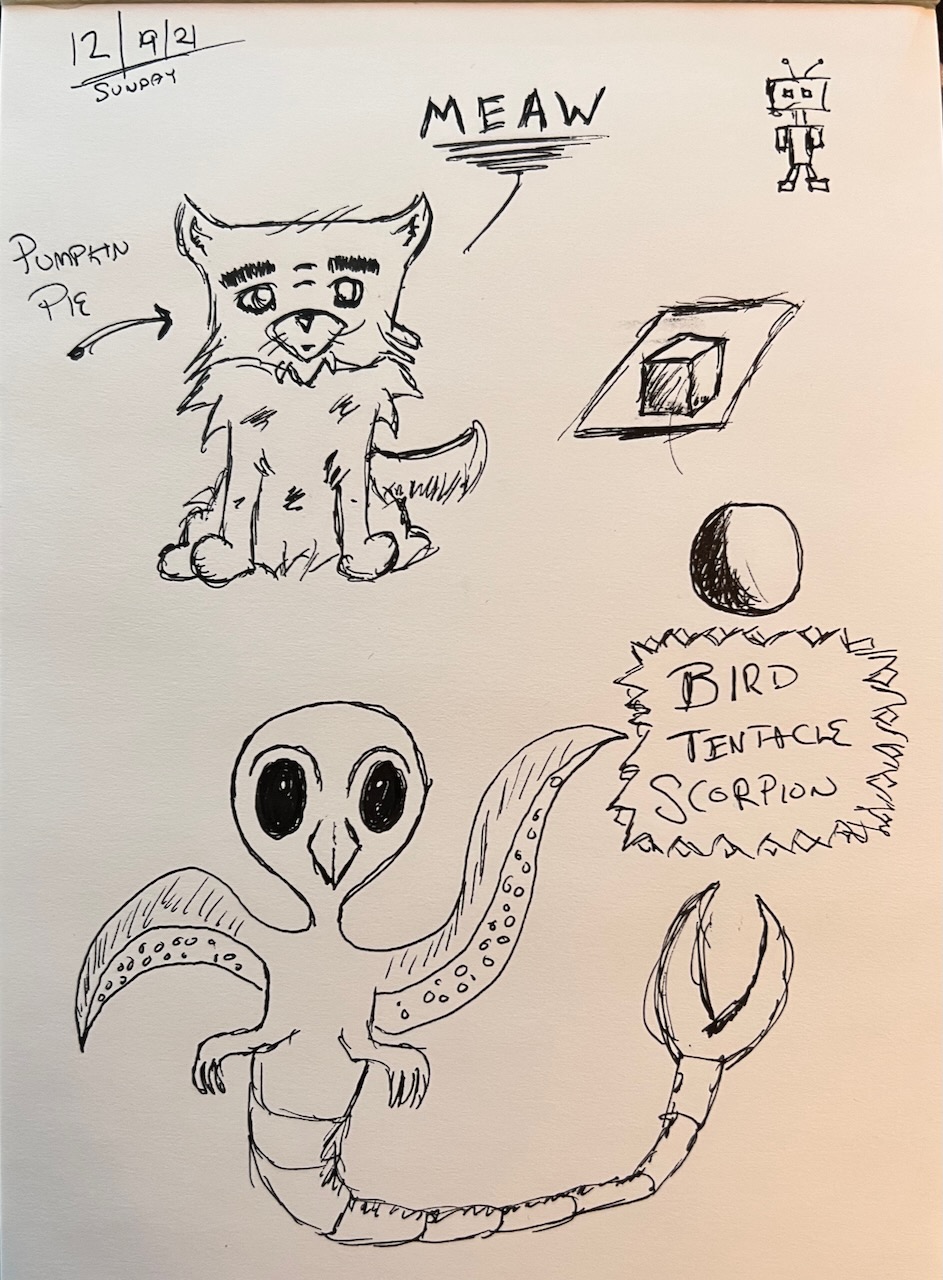 12/19/21
SUNDAY
MEAW
PUMPKIN
PIE
BIRD
TENTACLE
SCORPION